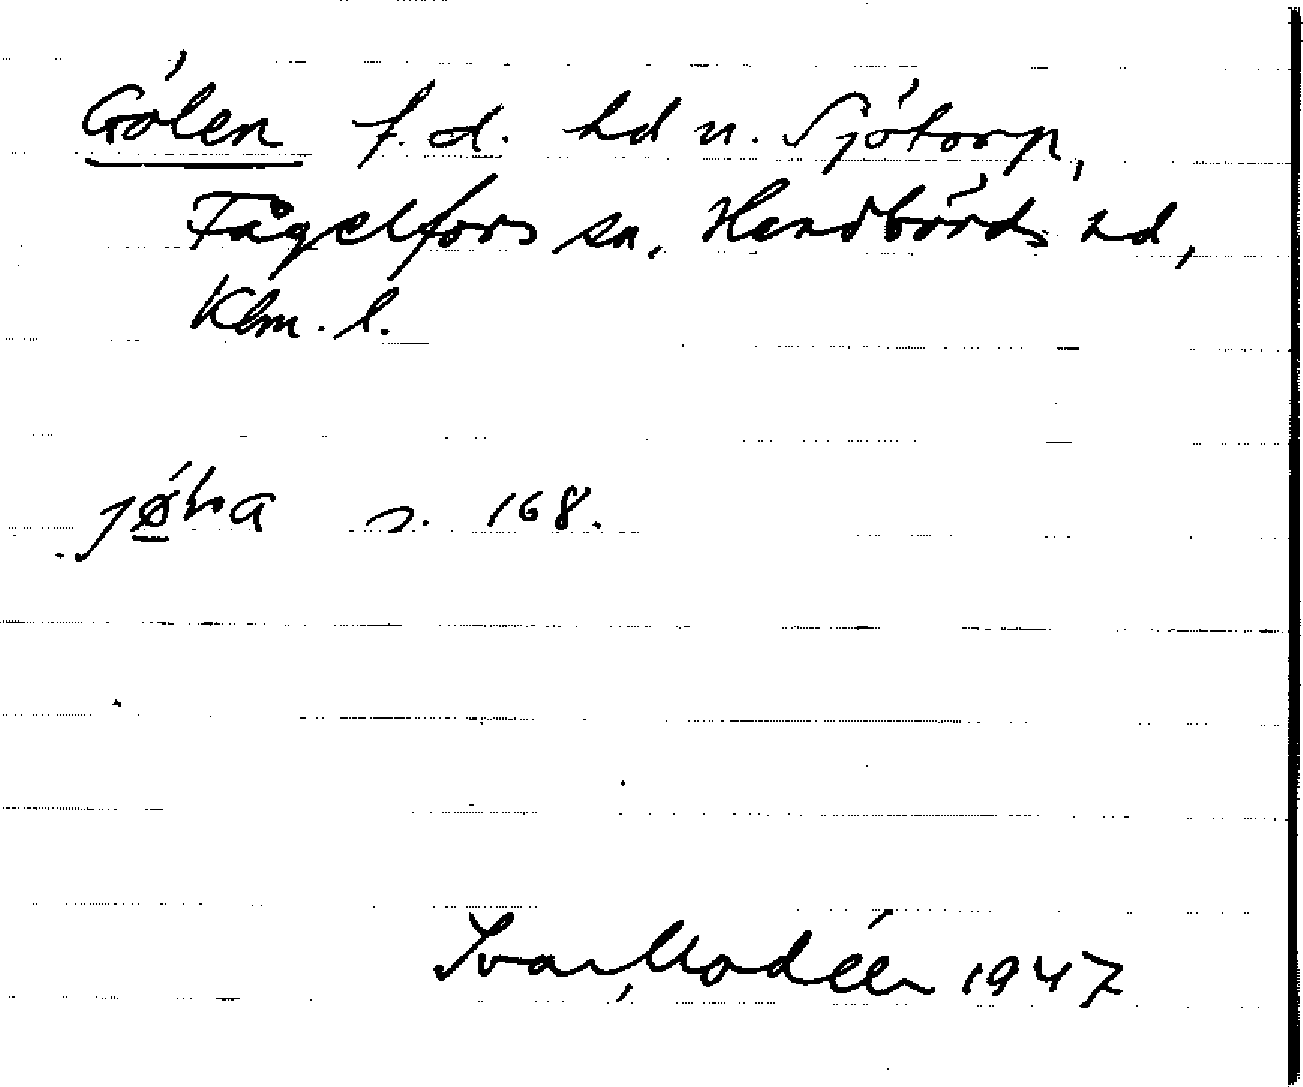 Gölen f.d. hd u. Sjötorp,
Fågelfors sn. Handbörds hd,
Klm. l.
s. 168.
Ivar Modéer 1947